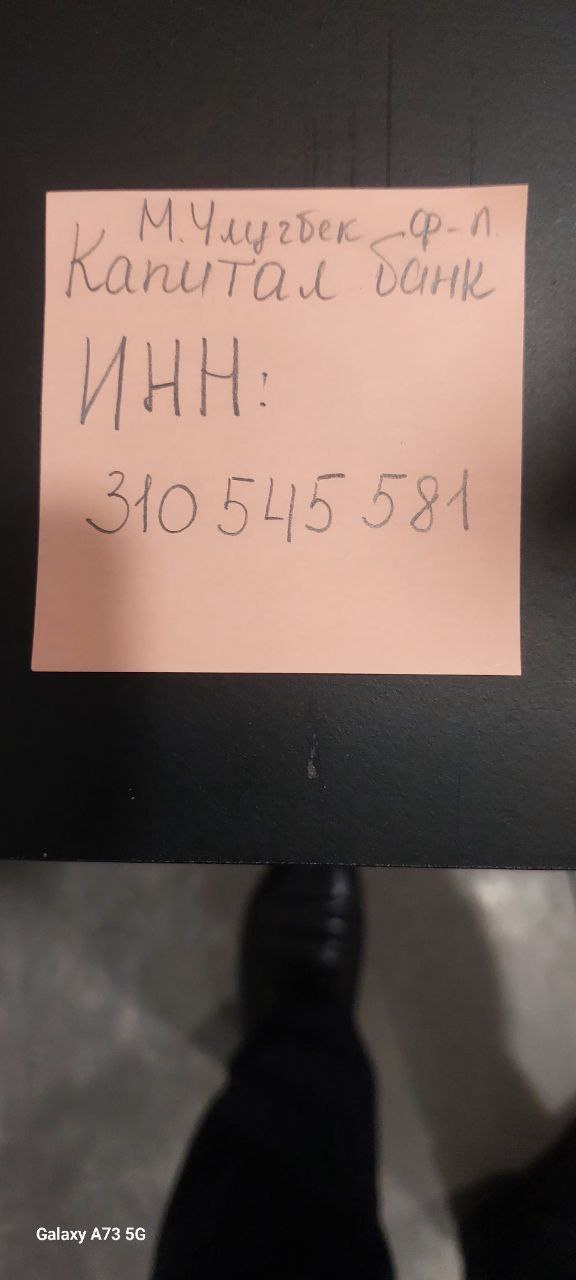 М.Улугбек ф-л.
Капитал банк
ИНН:
310 545 581
Galaxy A73 5G